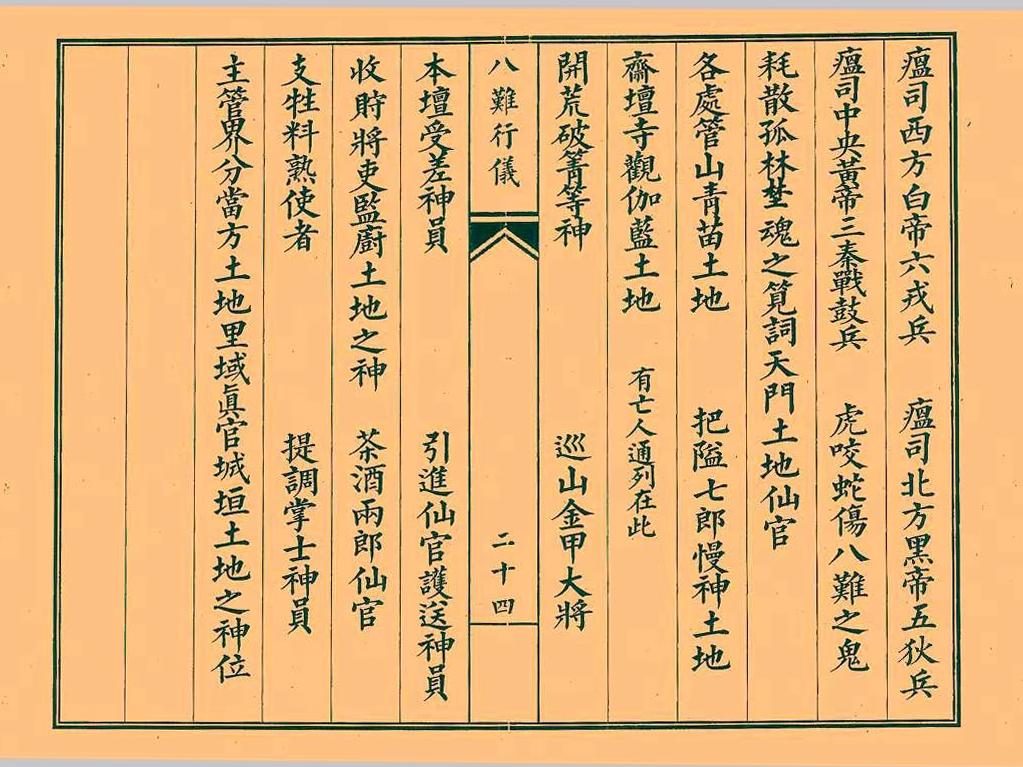 瘟司西方白帝六戎兵　瘟司北方黑帝五狄兵
瘟司中央黃帝三秦戰鼓兵　虎咬蛇傷八難之鬼
耗散孤林埜魂之筧詞天門土地仙官
各處管山青苗土地　把隘七郎慢神土地
齋壇寺觀伽藍土地　有亡人通列在此
開荒破箐等神　巡山金甲大將
八難行儀　二十四
本壇受差神員　引進仙官護送神員
收貯將吏監廚土地之神　茶酒兩郎仙官
支牲料熟使者　提調掌士神員
主管界分當方土地里域眞官城垣土地之神位